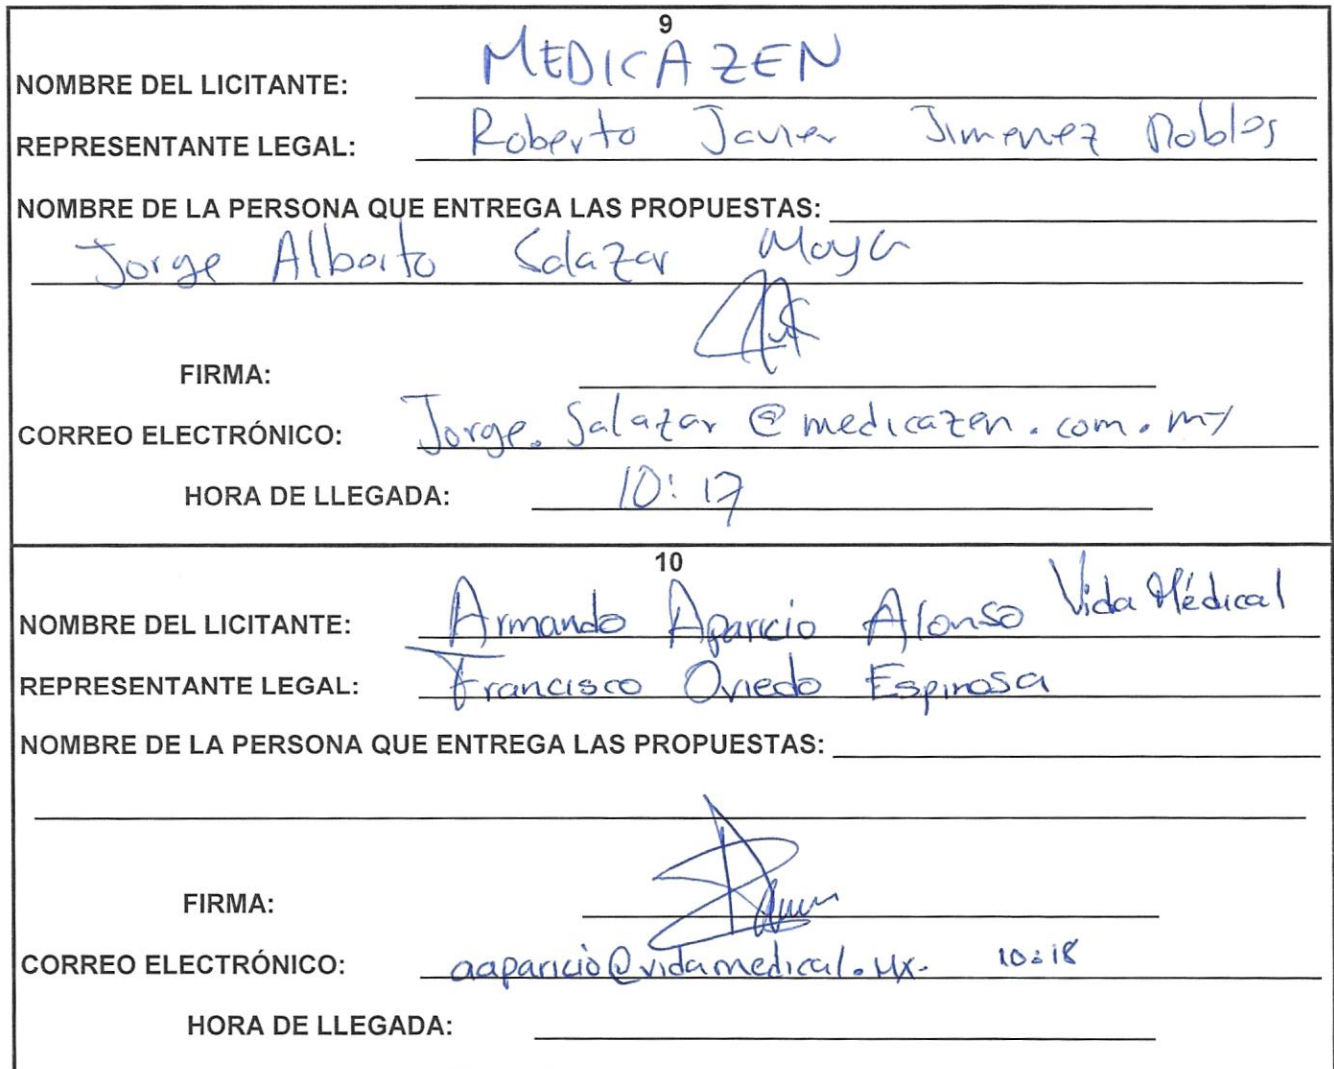 9
NOMBRE DEL LICITANTE: MEDICAZEN
REPRESENTANTE LEGAL: Roberto Javier Jimenez Robles
NOMBRE DE LA PERSONA QUE ENTREGA LAS PROPUESTAS:
Jorge Alberto Salazar Moya
FIRMA:
CORREO ELECTRÓNICO: Jorge.Salazar@medicazen.com.mx
HORA DE LLEGADA: 10:17
10
NOMBRE DEL LICITANTE: Armando Aparicio Alonso Vida Médical
REPRESENTANTE LEGAL: Francisco Oviedo Espinosa
NOMBRE DE LA PERSONA QUE ENTREGA LAS PROPUESTAS:
FIRMA:
CORREO ELECTRÓNICO: aaparicio@vidamedical.mx. 10:18
HORA DE LLEGADA: